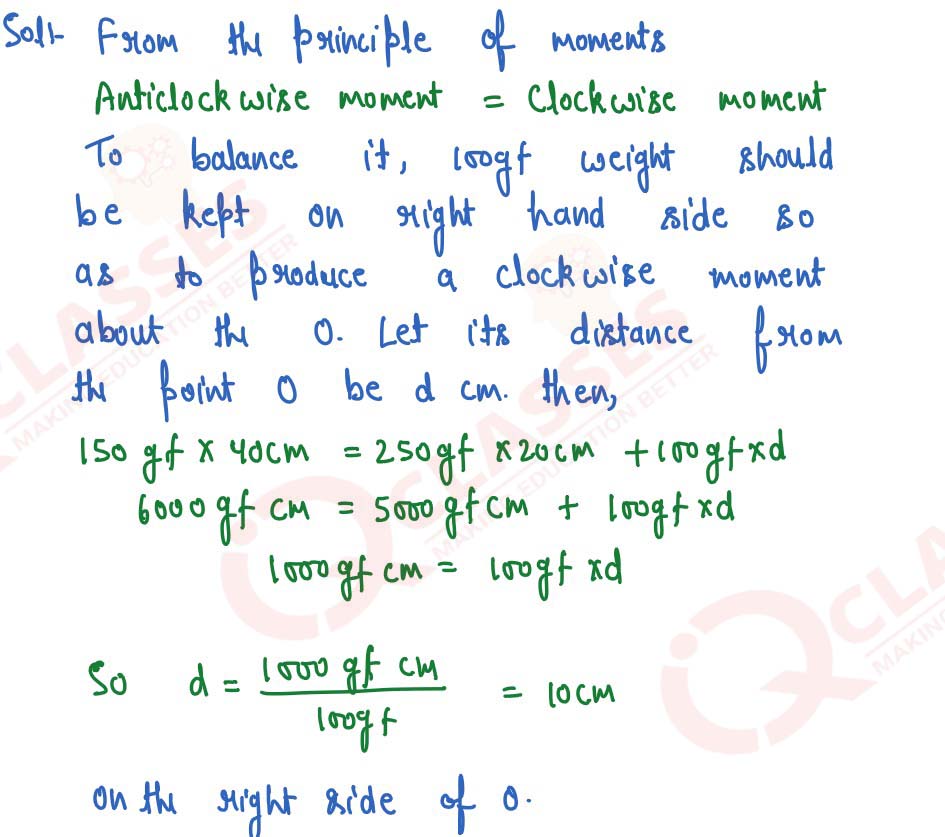 Sol:- From the principle of moments
Anticlockwise moment = Clockwise moment
To balance it, 100gf weight should
be kept on right hand side so
as to produce a clockwise moment
about the O. Let its distance from
the point O be d cm. then,
150 gf × 40cm = 250gf × 20cm + 100gf×d
6000 gf cm = 5000 gf cm + 100gf ×d
1000 gf cm = 100gf ×d
So d = 1000 gf cm / 100gf = 10cm
on the right side of O.
CLASSES
MAKING EDUCATION BETTER
iQ CLASSES
MAKING EDUCATION BETTER
iQ CLA
MAKING